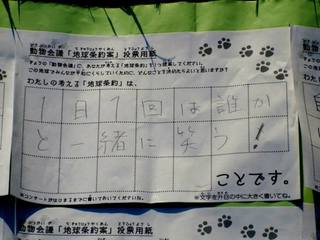 動物会議「地球条約案」投票用紙
きょうの「動物会議」に、あなたが考える「地球条約」を1つ提案してください。
この地球でみんなが平和にくらしていくために、どんなことを決めたらよいと思いますか?
わたしの考える「地球条約」は、
1日1回は誰か
と一緒に笑う!
ことです。
※コンサートがはじまるまでに書いておいてくださいね。
※文字を升目の中に大きく書いてね。
動物会議「地球条約案」投票用紙